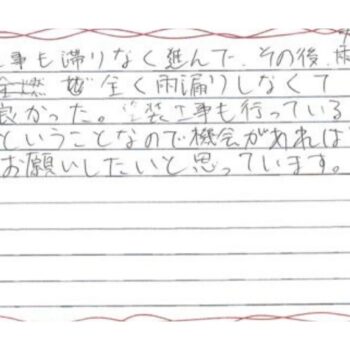 事も滞りなく進んで、その後、雨
全く雨漏りしなくて
良かった。塗装工事も行っている
ということなので機会があれば
お願いしたいと思っています。